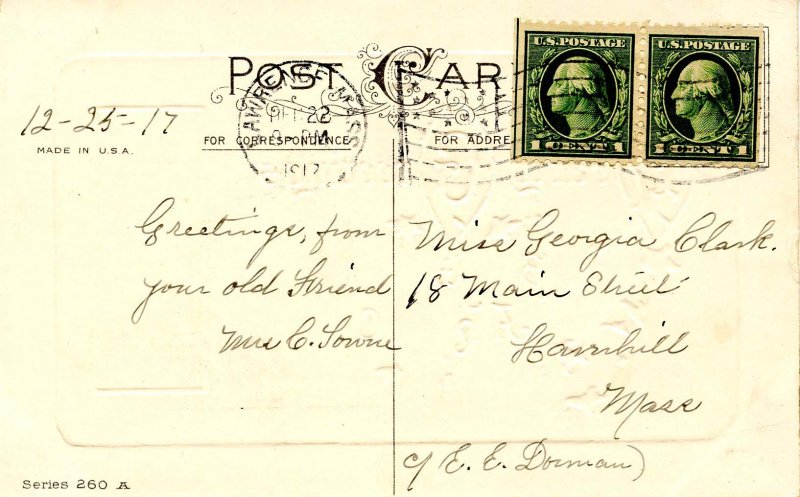 POST CARD
U.S. POSTAGE
U.S. POSTAGE
1 CENT 1
1 CENT 1
LAWRENCE MASS
DEC 22
PM
1917
12-25-17
MADE IN U.S.A.
FOR CORRESPONDENCE
FOR ADDRE
Greetings, from
your old Friend
Mrs C.
Miss Georgia Clark.
18 Main Street
Haverhill
Mass
c/ E. E. Dorman)
Series 260 A